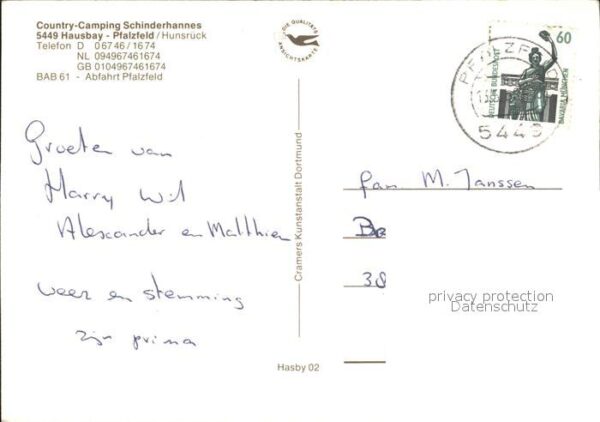 Country-Camping Schinderhannes
5449 Hausbay - Pfalzfeld / Hunsrück
Telefon D 0 67 46 / 16 74
NL 094967461674
GB 0104967461674
BAB 61 - Abfahrt Pfalzfeld
DIE QUALITÄTS
ANSICHTSKARTE
60
DEUTSCHE BUNDESPOST
BAVARIA MÜNCHEN
PFALZFELD
5449
Groeten van
Harry Wil
Alexander en Matthien
weer en stemming
zijn prima
Cramers Kunstanstalt Dortmund
Hasby 02
fam M. Janssen
Be
38
privacy protection
Datenschutz